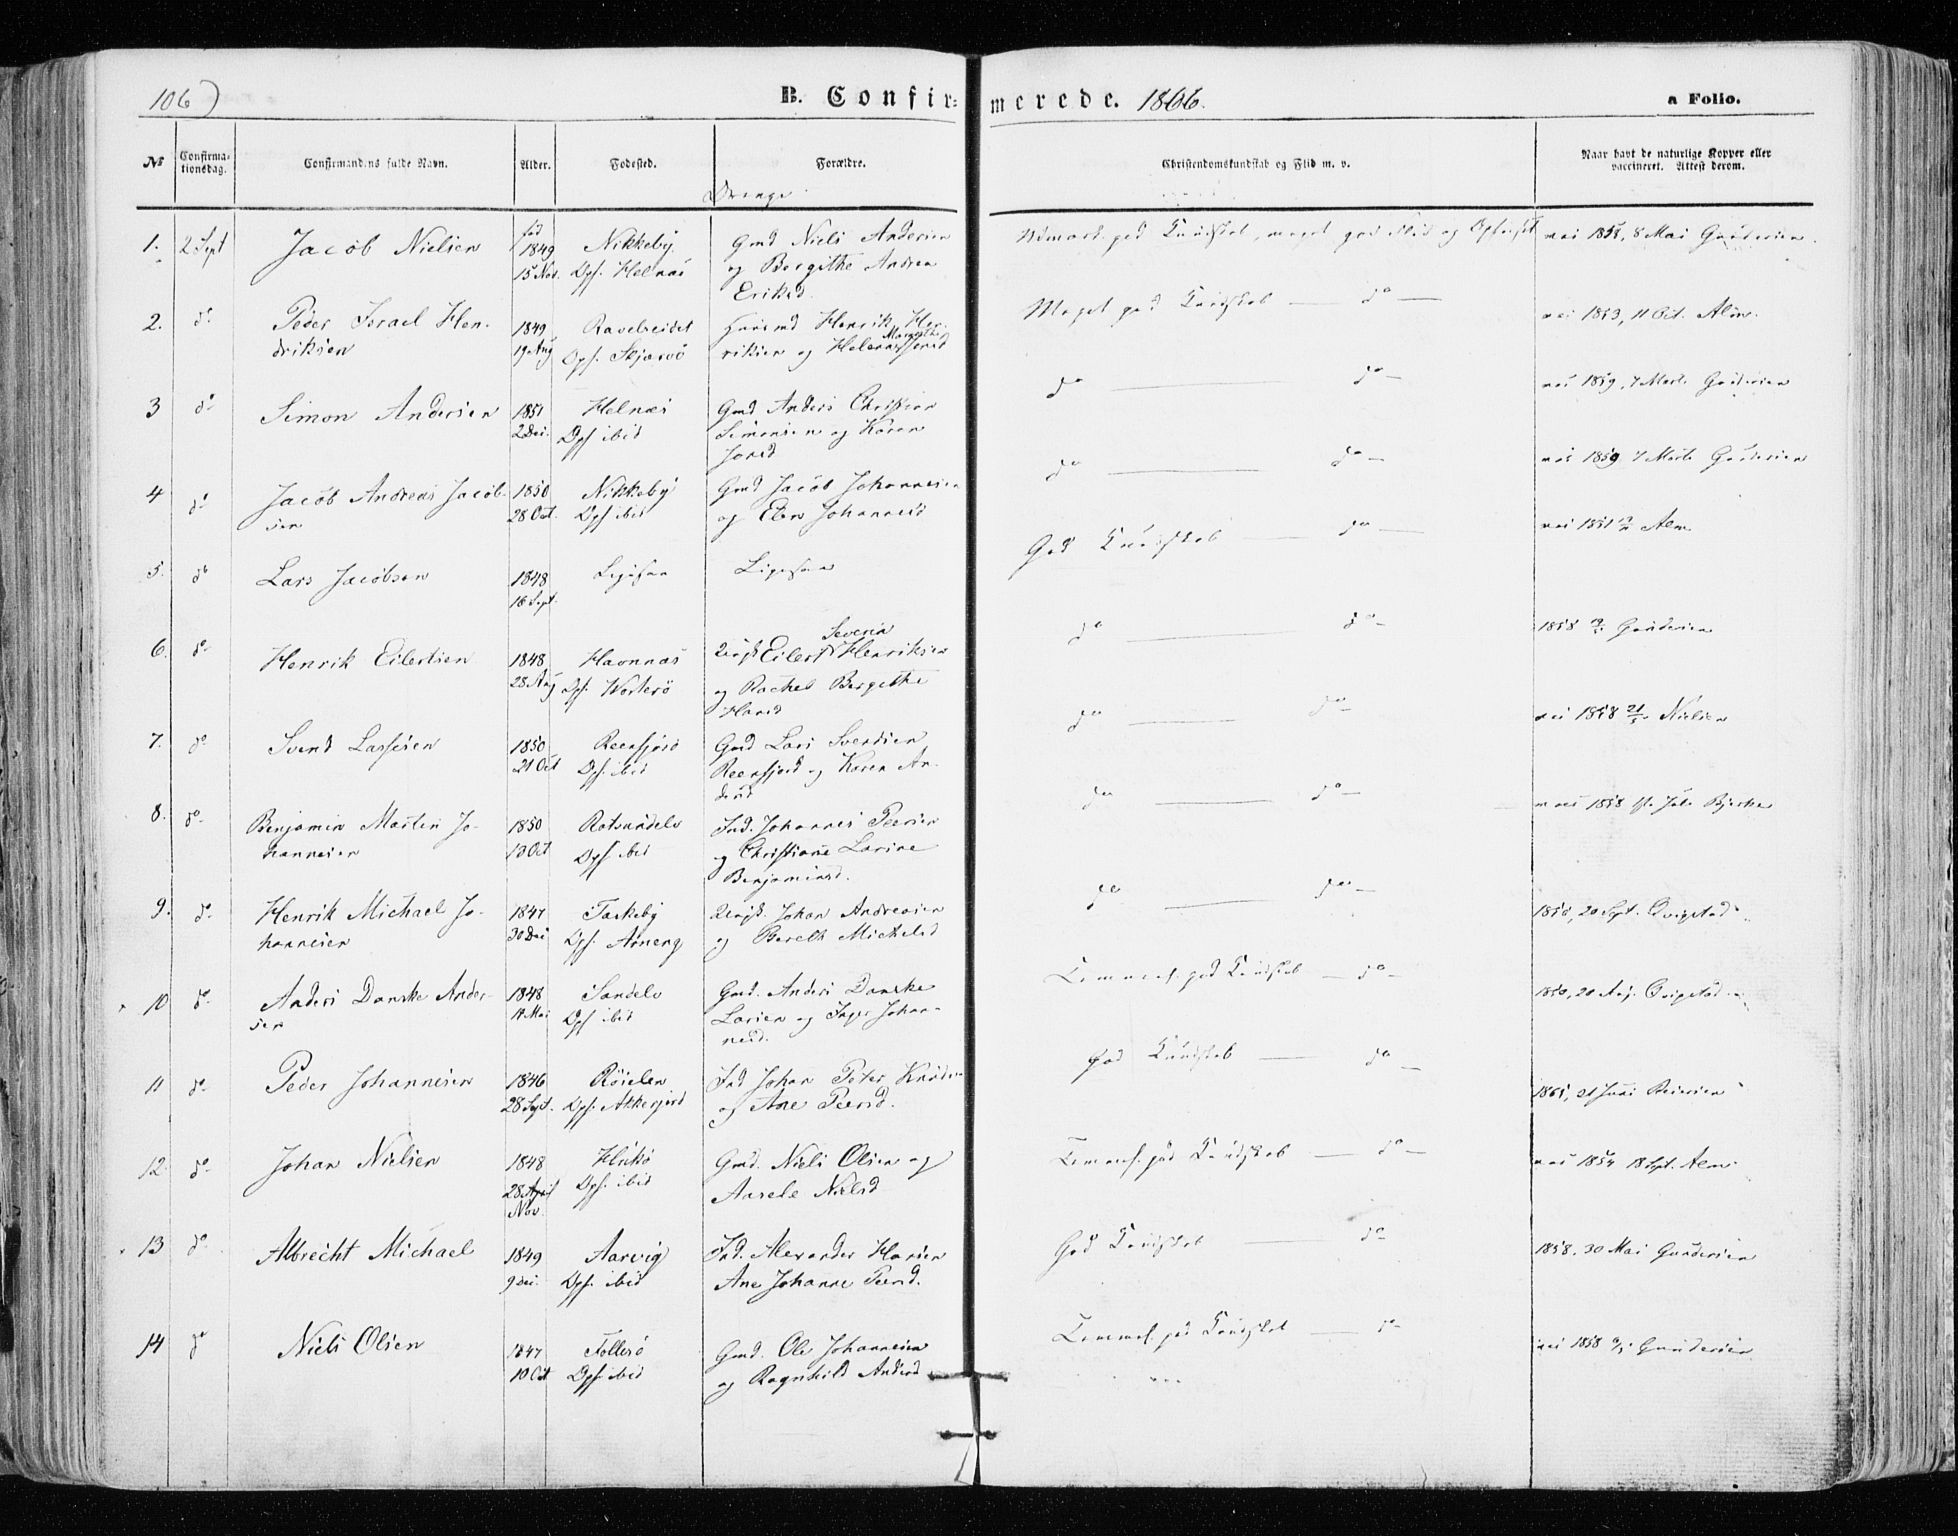 106)
B. Confir-
merede. 1866.
a Folio.
№
Confirma-
tionsdag.
Confirmandens fulde Navn.
Alder.
Fødested.
Forældre.
Christendomskundskab og Flid m. v.
Naar havt de naturlige Kopper eller
vaccineret. Attest derom.
Drenge
1. 2 Sept Jacob Nielsen
fød
1849
15 Nov.
Nikkeby
Dpf. Helnæs
Gmd Niels Andersen
og Bergithe Andrea
Eriksd.
god Kundskab, meget god Flid og Opførsel
vac 1858, 8 Mai Gundersen.
2. do Peder Israel Hen-
driksen
1849
19 Aug
Ravelseidet
Dpf. Skjærvø
Huusmd Henrik Hen-
riksen og Helene Margrethe
Meget god Kundskab — do —
vac 1853, 11 Oct. Alm.
3 do Simon Andersen
1851
2 Dec.
Helnæs
Dpf ibid
Gmd Anders Christian
Simonsen og Karen
Jonsd
do — do —
vac 1859, 7 Marts Gundersen
4 do Jacob Andreas Jacob-
sen
1850
28 Oct.
Nikkeby
Dpf ibid
Gmd Jacob Johannesen
og Elen Johannesd
do — do —
vac 1859 7 Marts Gundersen
5. do Lars Jacobsen
1848
16 Sept.
Ligesaa
Ligesaa
God Kundskab — do —
vac 1851 Alm
6. do Henrik Eilertsen
1848
28 Aug
Havnnæs
Dpf. Worterø
Eilert Severin Henriksen
og Rachel Bergithe
Hansd
do — do —
1858 Gundersen
7. do Svend Larsen
1850
21 Oct
Reenfjord
Dpf. ibid
Gmd Lars Svendsen
Reenfjord og Karen An-
dersd
do — do —
vac 1858 21/5 Nielsen
8. do Benjamin Martin Jo-
hannesen
1850
13 Oct
Rotsundelv
Dpf ibid
Ind. Johannes Peersen
og Christiane Larine
Benjaminsd.
do — do —
vac 1858 Juli Bjerke
9. do Henrik Michael Jo-
hannesen
1847
30 Dec
Taskeby
Dpf. Arneng
Johan Andreasen
og Bereth Michelsd
do — do —
1850, 20 Sept. Qvigstad
10 do Anders Danske Ander-
sen
1848
14 Mai
Sandelv
Dpf ibid
Gmd. Anders Danske
Larsen og Inger Johan-
nesd.
Temmel. god Kundskab — do —
1850, 20 Aug. Qvigstad
11 do Peder Johannesen
1846
28 Sept.
Røielen
Dpf. Akkerfjord
Ind Johan Peter Knudsen
og Ane Peersd.
God Kundskab — do —
1865, 21 Juni
12. do Johan Nielsen
1848
28 April
Nov.
Hukø
Dpf. ibid
Gmd. Niels Olsen og
Nielsd
Temmel. god Kundskab — do —
vac 1854 18 Sept. Alm.
13 do Albrecht Michael
1849
9 Dec.
Aarvig
Dpf. ibid
Ind. Alexander Hansen
Ane Johanne Peersd.
God Kundskab — do
1858. 30 Mai Gundersen
14 do Niels Olsen
1847
10 Oct
Follesø
Dpf. ibid
Gmd. Ole Johannesen
og Ragnhild Andersd
Temmel. god Kundskab — do
vac 1858 Gundersen